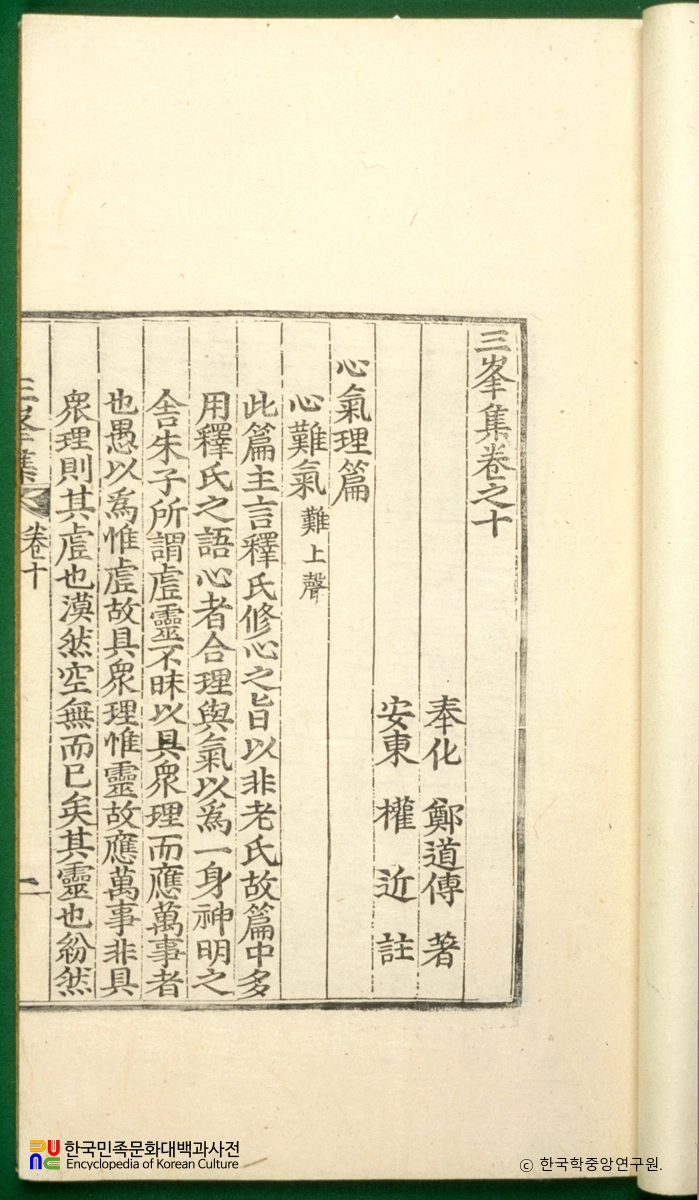 三峯集卷之十
奉化 鄭道傳 著
安東 權近 註
心氣理篇
心難氣 難上聲
此篇主言釋氏修心之旨以非老氏故篇中多
用釋氏之語心者合理與氣以爲一身神明之
舍朱子所謂虛靈不昧以具衆理而應萬事者
也愚以爲惟虛故具衆理惟靈故應萬事非具
衆理則其虛也漠然空無而已矣其靈也紛然
三峯集 卷十 一
한국민족문화대백과사전
Encyclopedia of Korean Culture
© 한국학중앙연구원.